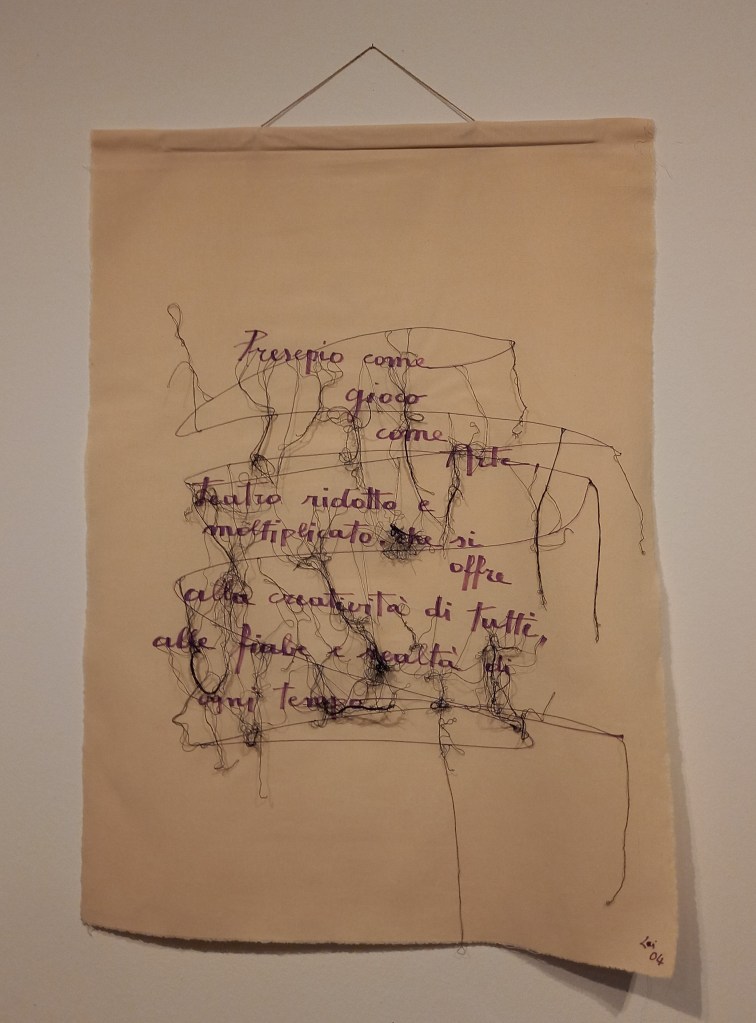 Presepio come
gioco
come
Arte,
teatro ridotto e
moltiplicato. Ma si
offre
alla creatività di tutti,
alle fiabe e realtà di
ogni tempo
Lai
04